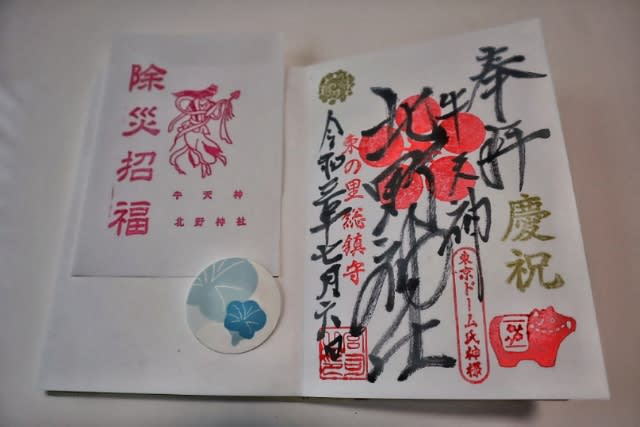 除災招福
牛天神
北野神社
奉拝
慶祝
牛天神
北野神社
東京ドーム氏神様
の里総鎮守
令和三年七月六日